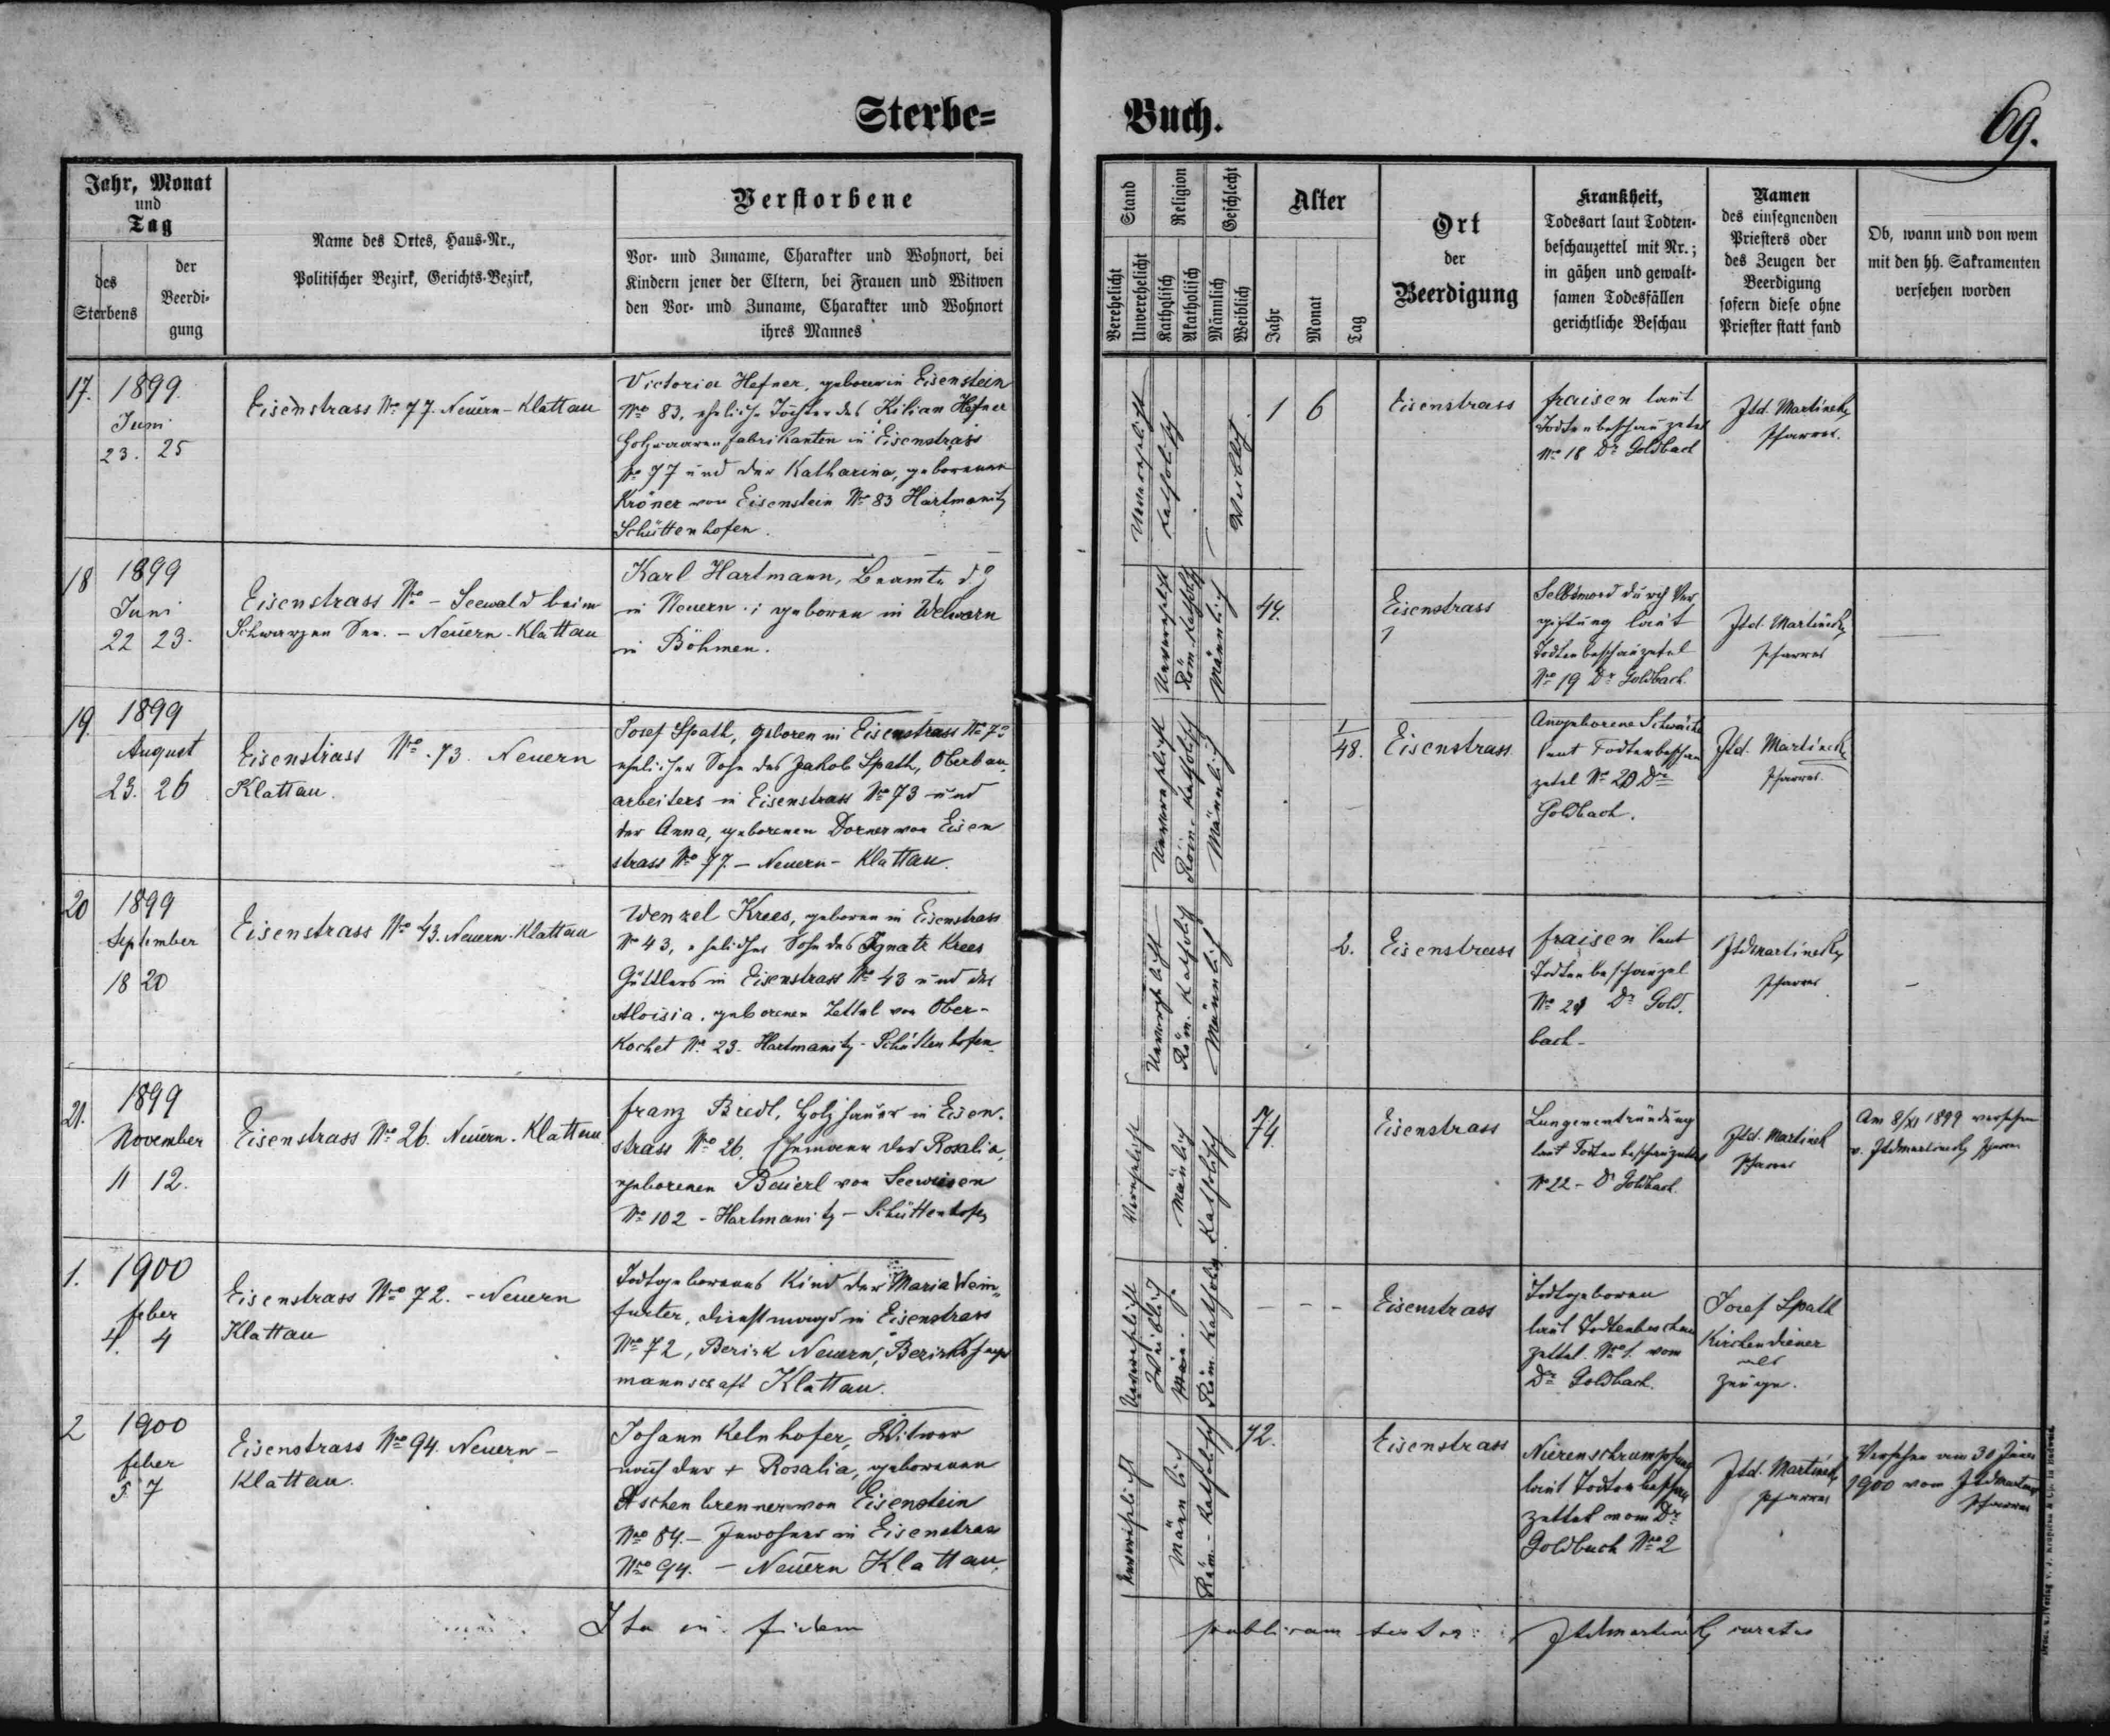 Sterbe= Buch.
69.
Jahr, Monat
und
Tag
des
Sterbens
der
Beerdi-
gung
Name des Ortes, Haus-Nr.,
Politischer Bezirk, Gerichts-Bezirk,
Verstorbene
Vor- und Zuname, Charakter und Wohnort, bei
Kindern jener der Eltern, bei Frauen und Witwen
den Vor- und Zuname, Charakter und Wohnort
ihres Mannes
Stand
Verehelicht
Unverehelicht
Religion
Katholisch
Akatholisch
Geschlecht
Männlich
Weiblich
Alter
Jahr
Monat
Tag
Ort
der
Beerdigung
Krankheit,
Todesart laut Todten-
beschauzettel mit Nr.;
in gähen und gewalt-
samen Todesfällen
gerichtliche Beschau
Namen
des einsegnenden
Priesters oder
des Zeugen der
Beerdigung
sofern diese ohne
Priester statt fand
Ob, wann und von wem
mit den hh. Sakramenten
versehen worden
17. 1899.
Juni
23. 25
Eisenstrass No 77. Neuern - Klattau
Victoria Hefner, geboren in Eisenstein
No 83, eheliche Tochter des Kilian Hefner
Holzwaaren fabrikanten in Eisenstrass
No 77 und der Katharina, geborenen
Kröner von Eisenstein No 83 Hartmanitz
Schüttenhofen.
Unverehelicht
Katholisch
Weiblich
1 6
Eisenstrass
fraisen laut
Todtenbeschauzetel
No 18 Dr Goldbach
Jtd. Martinek
Pfarrer.
18 1899
Juni
22 23.
Eisenstrass No - Seewald beim
Schwarzen See. - Neuern - Klattau
Karl Hartmann, Beamte
in Neuern; geboren in Welwarn
in Böhmen.
Unverehelicht
Röm. Katholisch
Männlich
Eisenstrass
Selbstmord durch Ver
giftung laut
Todtenbeschauzetel
No 19 Dr Goldbach.
Jtd. Martinek
Pfarrer
19. 1899
August
23. 26
Eisenstrass No. 73. Neuern
Klattau.
Josef Spath, geboren in Eisenstrass No 73
ehelicher Sohn des Jakob Spath, Oberbau
arbeiters in Eisenstrass No 73 und
der Anna, geborenen Dorner von Eisen
strass No 77. - Neuern - Klattau.
Unverehelicht
Röm. Katholisch
Männlich
1/48.
Eisenstrass
Angeborene Schwäche
laut Todtenbeschau
zetel No 20 Dr
Goldbach.
Jtd. Martinek
Pfarrer.
20 1899
September
18 20
Eisenstrass No 43. Neuern - Klattau
Wenzel Krees, geboren in Eisenstrass
No 43, ehelicher Sohn des Ignatz Krees
Güttlers in Eisenstrass No 43 und der
Aloisia, geborenen Zettel von Ober-
Kochet No. 23. Hartmanitz - Schüttenhofen
Unverehelicht
Röm. Katholisch
Männlich
2.
Eisenstrass
fraisen laut
Todtenbeschauzel
No 21 Dr Gold.
bach -
Jtdmartinek
Pfarrer
21. 1899
November
11 12.
Eisenstrass No 26. Neuern. Klattau
Franz Bredl, Holzhauer in Eisen.
strass No 26. Ehemann der Rosalia,
geborenen Baierl von Seewiesen
No 102 - Hartmanitz - Schüttenhofen
Verehelicht
Männlich
Katholisch
74.
Eisenstrass
Lungenentzündung
laut Todtenbeschauzettel
No 22 - Dr Goldbach.
Jtd. Martinek
Pfarrer
Am 8/XI 1899 versehen
v. Jtdmartinek Pfarrer
1. 1900
feber
4. 4
Eisenstrass No 72. - Neuern
Klattau
Todtgeborenes Kind der Maria Wein„
furter, Dienstmagd in Eisenstrass
No 72, Bezirk Neuern, Bezirkshaupt
mannschaft Klattau.
Unverehelicht
Weiblich
Röm. Katholisch
- - -
Eisenstrass
Todtgeboren
laut Todtenbeschau
zettel No 1. vom
Dr Goldbach.
Josef Spath
Kirchendiener
als
Zeuge.
2 1900
feber
5. 7
Eisenstrass No 94. Neuern -
Klattau.
Johann Kelnhofer, Witwer
nach der + Rosalia, geborenen
Aschenbrenner von Eisenstein
No 84. - Inwohner in Eisenstrass
No 94. - Neuern Klattau.
Unverehelicht
Männlich
Röm. - Katholisch
72.
Eisenstrass
Nierenschrumpfung
laut Todtenbeschau
zettel vom Dr
Goldbach No 2
Jtd. Martinek
Pfarrer
Versehen am 30 Jänner
1900 vom Jtdmartinek
Pfarrer
Ita in fidem publicam testor: Jtdmartinek curatus